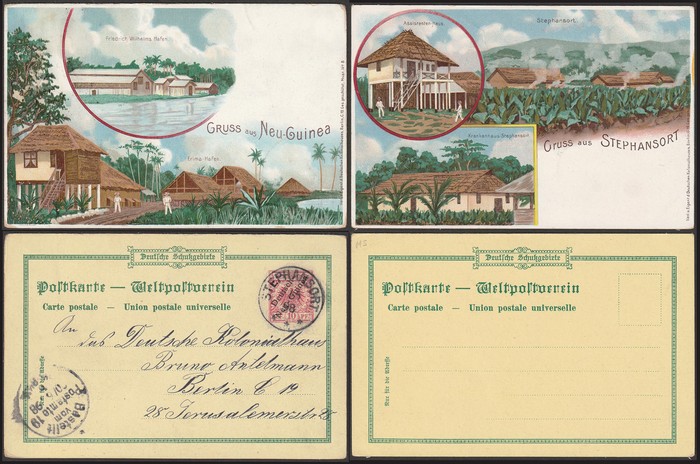 Friedrich Wilhelms Hafen.
Gruss aus Neu-Guinea
Erima-Hafen
Assistenten-Haus.
Stephansort.
Krankenhaus-Stephansort
Gruss aus Stephansort
Deutsche Schutzgebiete
Postkarte — Weltpostverein
Carte postale — Union postale universelle
STEPHANSORT
98
10
An
das Deutsche Kolonialhaus
Bruno Antelmann
Berlin C 19
28 Jerusalemerstr
Nur für die Adresse
Bestellt
vom
Postamte 19
98
Deutsche Schutzgebiete
Postkarte — Weltpostverein
Carte postale — Union postale universelle
Nur für die Adresse